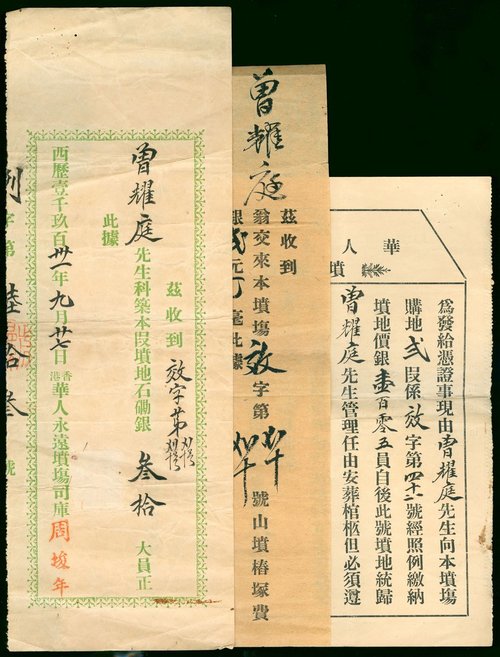 華人
墳
為發給憑證事現由曾耀庭先生向本墳塲
購地弍叚係放字第四十二號經照例繳納
墳地價銀壹百零五員自後此號墳地統歸
曾耀庭先生管理任由安葬棺柩但必須遵
茲收到
曾耀庭翁交來本墳塲放字第 號山墳樁塚費
銀弍元 毫此據
茲收到放字第
曾耀庭先生科築本叚墳地石磡銀叁拾大員正
此據
西歷壹千玖百卅一年九月廿七日香港華人永遠墳塲司庫周埈年
列字第陸拾叁號